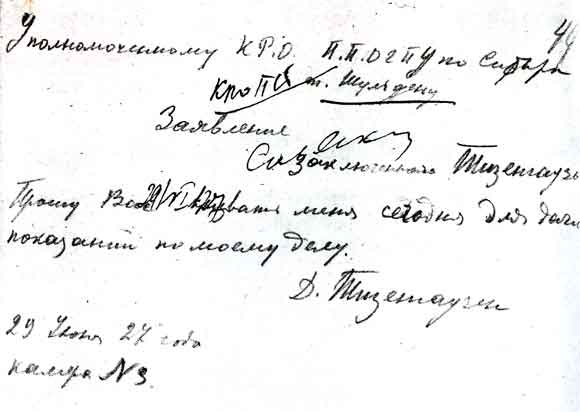 44
Уполномоченному К.Р.О. П.П.ОГПУ по Сибири
т. Шульдену
Заявление
Заключенного Тизенгаузе
Прошу Вас вызвать меня сегодня для дачи
показаний по моему делу.
Д. Тизенгаузен
29 Июня 27 года
камера №3.